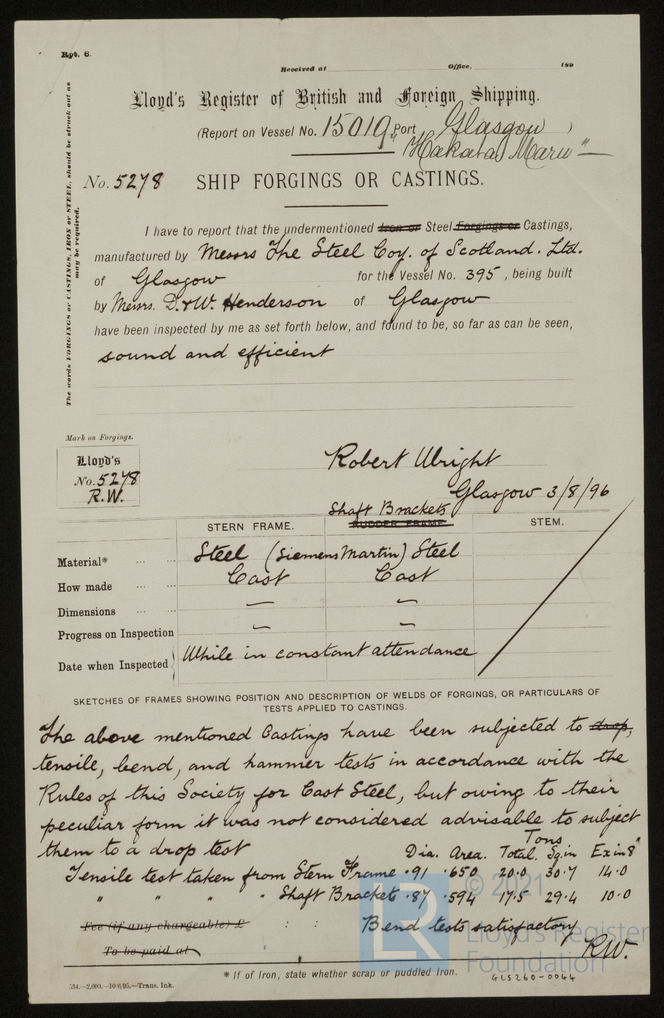 Rpt. 6.
Received at Office, 189
Lloyd's Register of British and Foreign Shipping.
(Report on Vessel No. 15019, Port Glasgow )
"Hakata Maru"
No. 5278 SHIP FORGINGS OR CASTINGS.
The words FORGINGS or CASTINGS, IRON or STEEL, should be struck out as may be required.
I have to report that the undermentioned Iron or Steel Forgings or Castings,
manufactured by Messrs The Steel Coy. of Scotland. Ltd.
of Glasgow for the Vessel No. 395, being built
by Messrs. D. & W. Henderson of Glasgow
have been inspected by me as set forth below, and found to be, so far as can be seen,
sound and efficient
Mark on Forgings.
Lloyd's
No. 5278
R.W.
Robert Wright
Glasgow 3/8/96
Shaft Brackets
STERN FRAME. RUDDER FRAME. STEM.
Material* Steel (Siemens Martin) Steel
How made Cast Cast
Dimensions — —
Progress on Inspection — —
Date when Inspected While in constant attendance
SKETCHES OF FRAMES SHOWING POSITION AND DESCRIPTION OF WELDS OF FORGINGS, OR PARTICULARS OF
TESTS APPLIED TO CASTINGS.
The above mentioned Castings have been subjected to drop,
tensile, bend, and hammer tests in accordance with the
Rules of this Society for Cast Steel, but owing to their
peculiar form it was not considered advisable to subject
them to a drop test
Tons
Dia. Area. Total. Sq.in Ex in 8"
Tensile test taken from Stern Frame .91 .650 20.0 30.7 14.0
" " " " Shaft Brackets .87 .594 17.5 29.4 10.0
Fee (if any chargeable) £ : : Bend tests satisfactory
To be paid at
R.W.
* If of Iron, state whether scrap or puddled Iron.
534.—2,000.—10/6/95.—Trans. Ink.
GLS260-0044
LR
© 2021
Lloyd's Register
Foundation